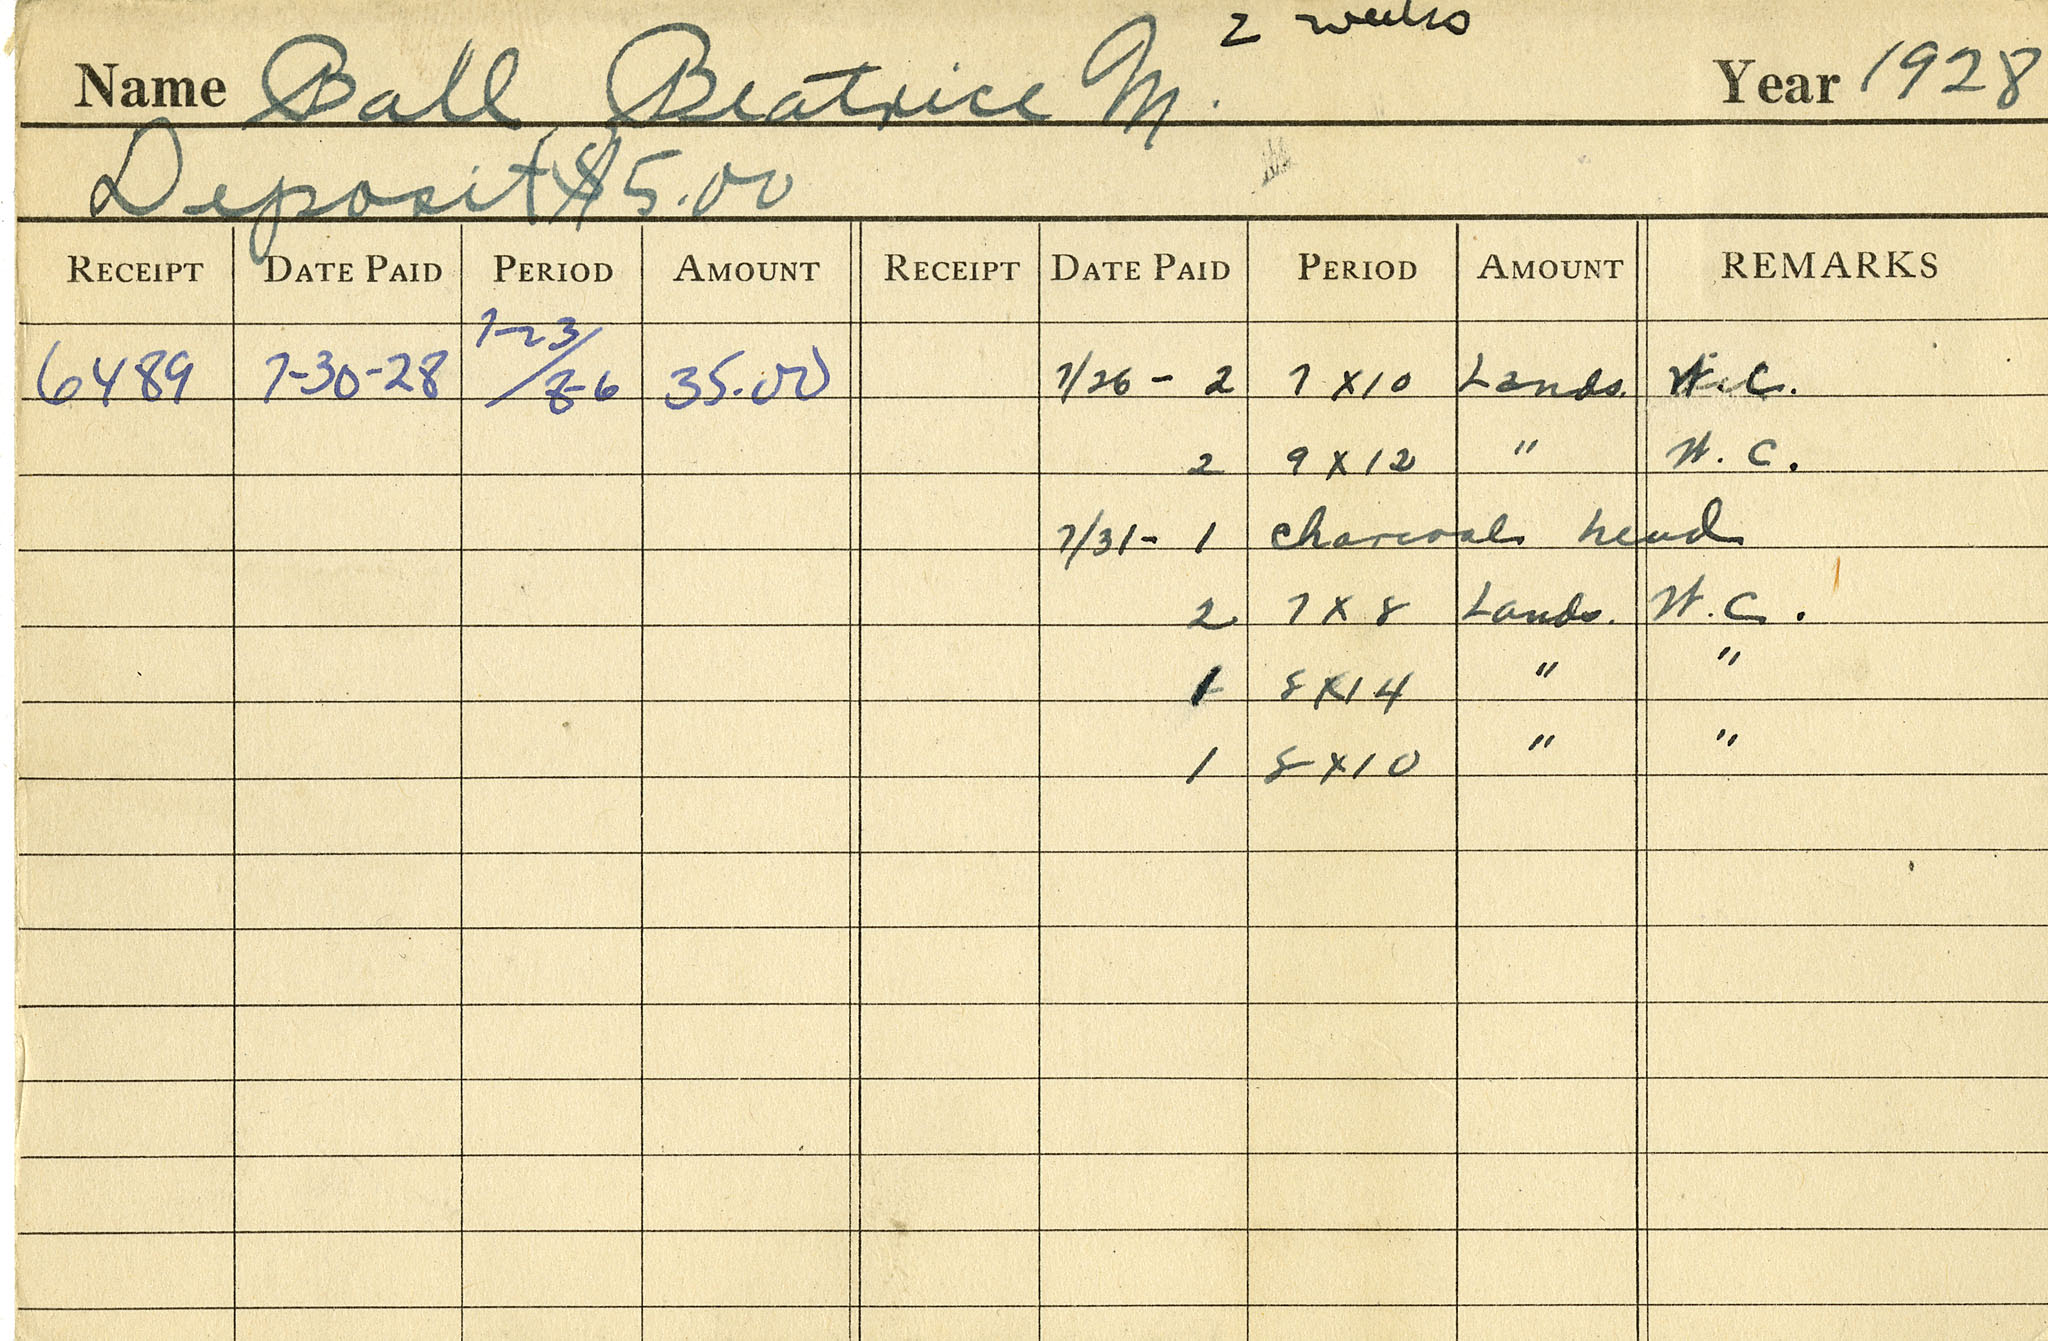 2 weeks
Name Ball Beatrice M. Year 1928
Deposit $5.00
RECEIPT DATE PAID PERIOD AMOUNT RECEIPT DATE PAID PERIOD AMOUNT REMARKS
6489 7-30-28 7-23/8-6 35.00 7/26 - 2 7 x 10 Lands. W.C.
2 9 x 12 " W.C.
7/31 - 1 charcoal head
2 7 x 8 Lands. W.C.
1 8 x 14 " "
1 8 x 10 " "